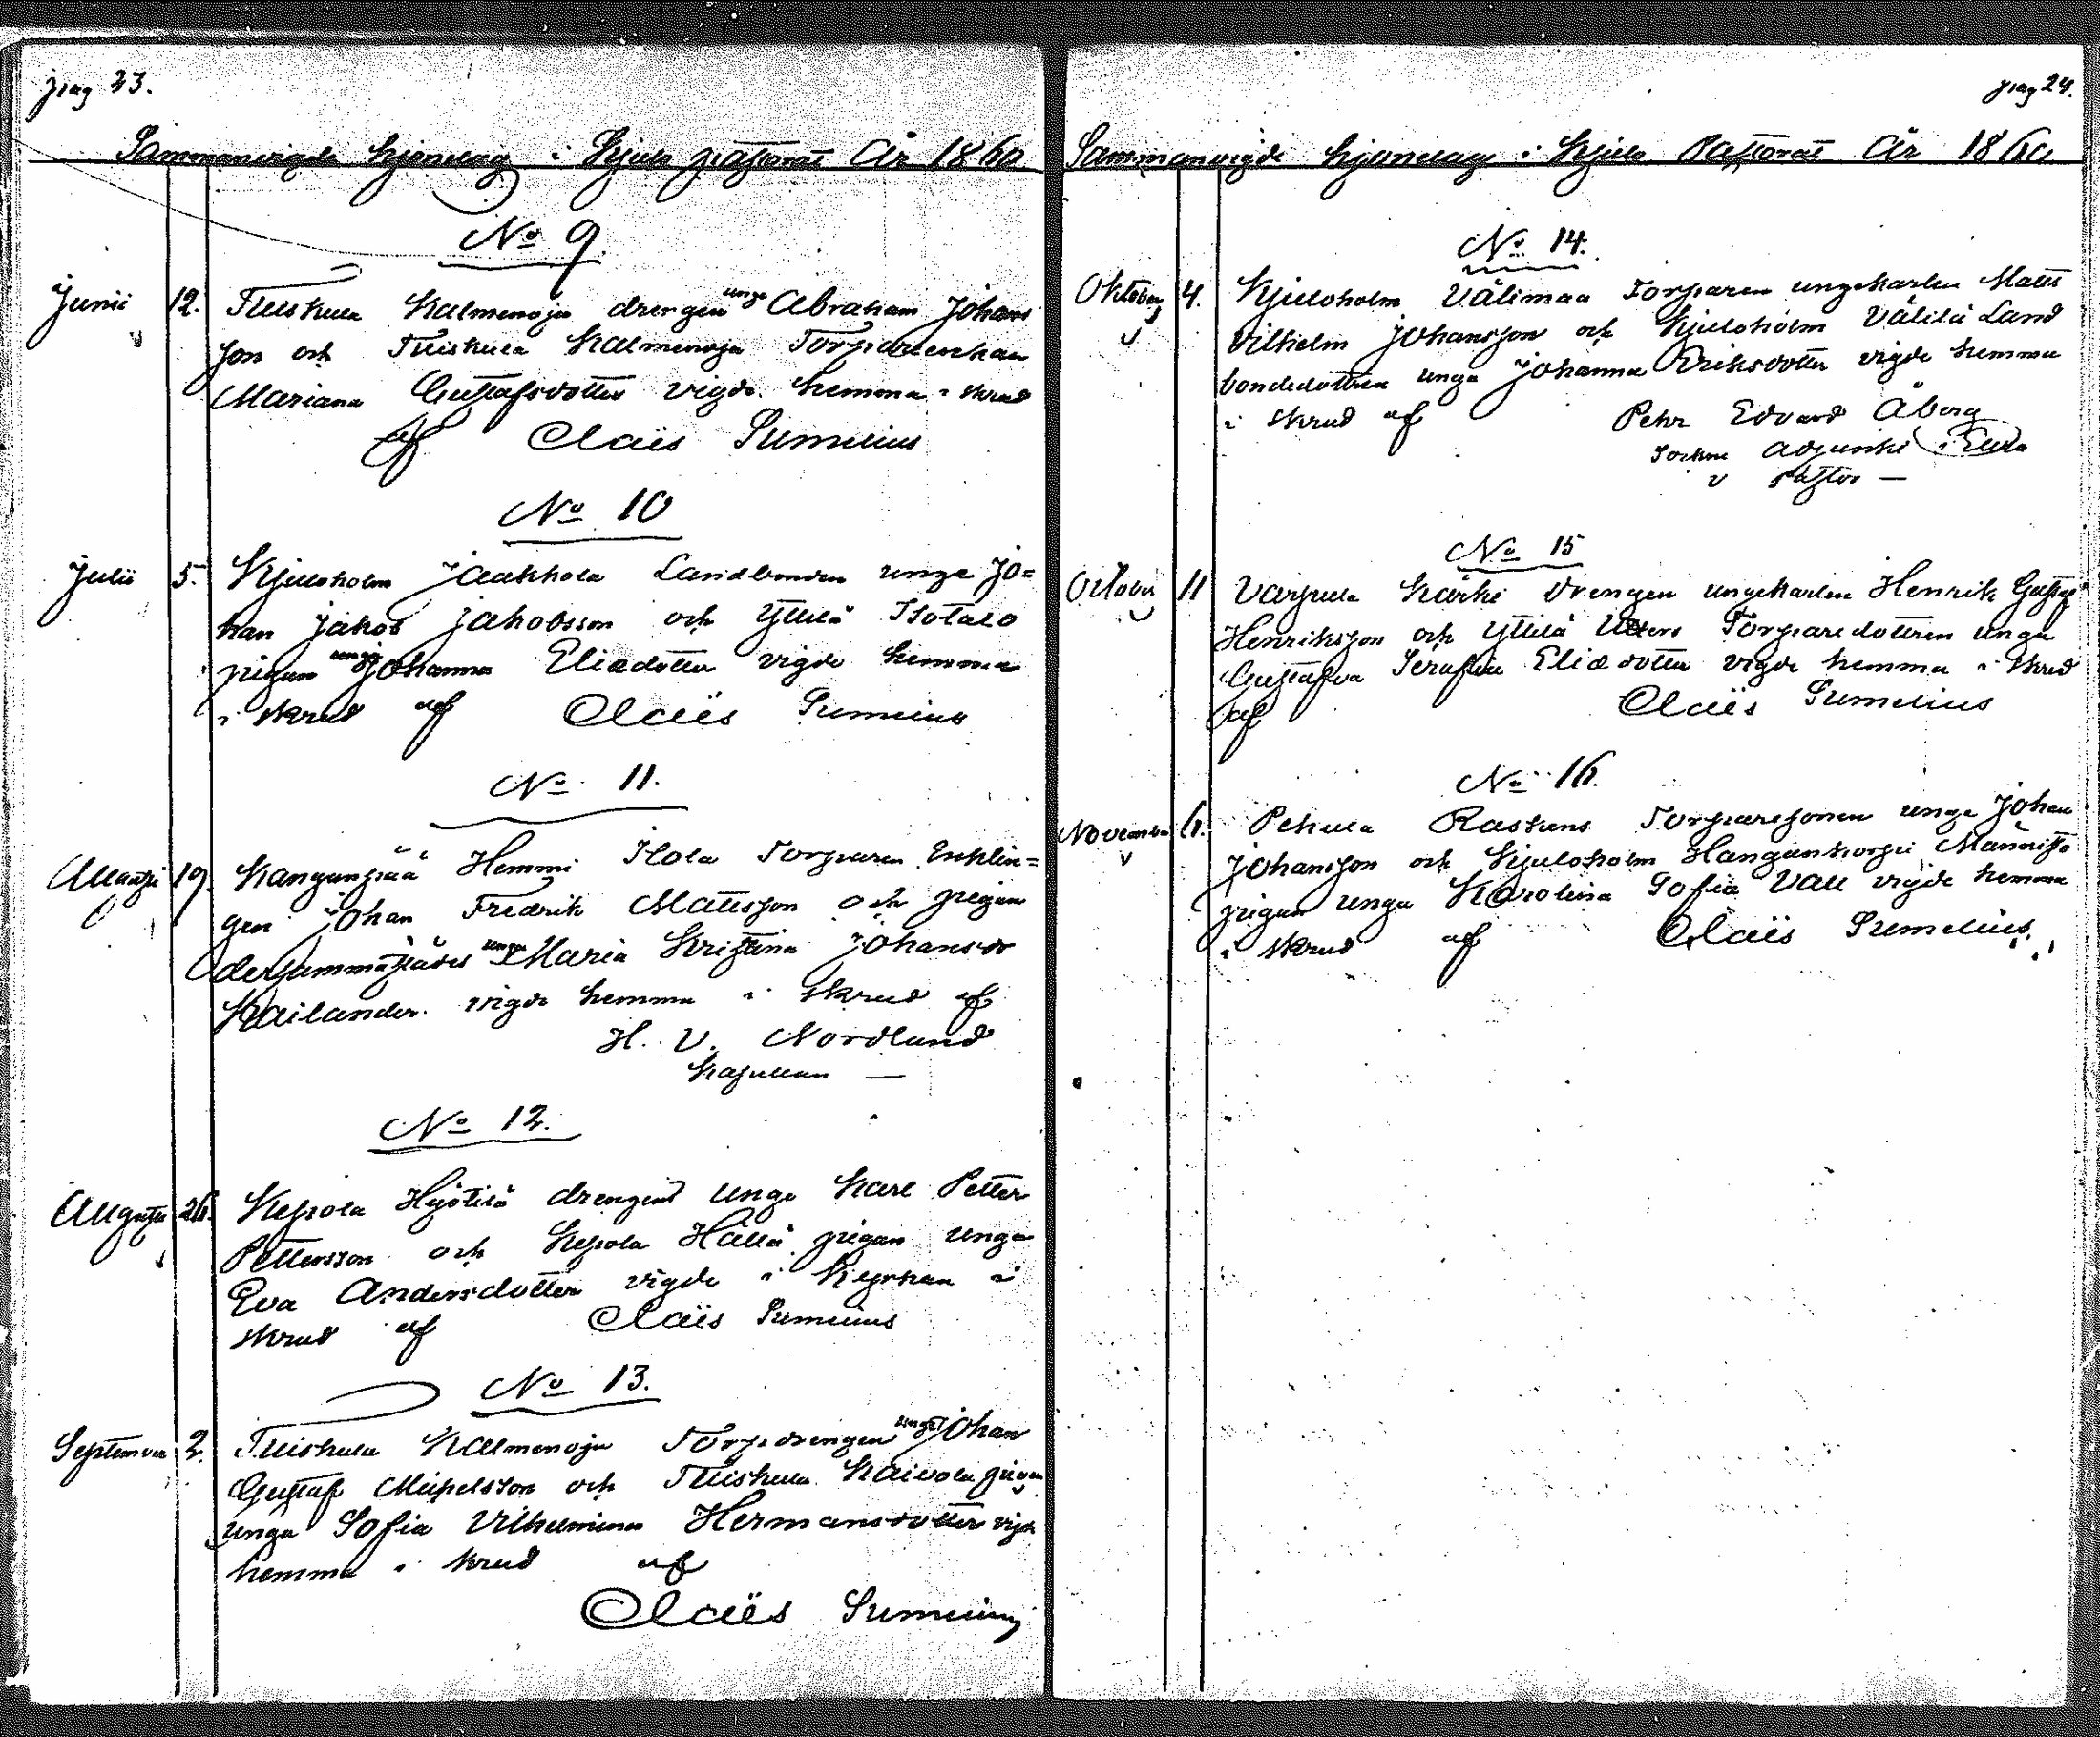 pag 23.
Sammanvigde hjonelag i Kjulo pastorat År 1860
No 9
Junii 12. Tuiskula Kalmenoja drengen unge Abraham Johans
son och Tuiskula Kalmenoja Torpareenkan
Mariana Gustafsdotter vigde hemma i skrud
af Claës Sumelius
No 10
Julii 5. Kjuloholm Jaakkola Landbonden unge Jo=
han Jakob Jakobsson och Yttilä Isotalo
pigan unga Johanna Eliædotter vigde hemma
i skrud af Claës Sumelius
No 11.
Augusti 19. Kanganpää Hemmi Ilola Torparen Enklin=
gen Johan Fredrik Matsson och pigan
dersammastädes unga Maria Kristina Johansdr
Kailander vigde hemma i skrud af
H. V. Nordlund
Kapellan —
No 12.
Augusti 26. Kepola Hyötilä drengen unge Karl Petter
Pettersson och Kepola Hällä pigan unga
Eva Andersdotter vigde i Kyrkan i
skrud af Claës Sumelius
No 13.
September 2. Tuiskula Kalmenoja Torpdrengen unge Johan
Gustaf Mickelsson och Tuiskula Kaivola pigan
unga Sofia Vilhelmina Hermansdotter vigde
hemma i skrud af
Claës Sumelius
pag 24.
Sammanvigde hjonelag i Kjulo Pastorat År 1860
No 14.
Oktober 4. Kjuloholm Välimaa Torparen ungekarlen Matts
Vilhelm Johansson och Kjuloholm Välilä Land
bondedottren unga Johanna Eriksdotter vigde hemma
i skrud af Pehr Edvard Åberg
Sockne adjunkt i Eura
v pastor —
No 15
October 11 Varpula Kärki Drengen ungekarlen Henrik Gustaf
Henriksson och Yttilä Uters Torparedottren unga
Gustafva Serafia Eliædotter vigde hemma i skrud
af Claës Sumelius
No 16.
November 6. Pehula Raskens Torparesonen unge Johan
Johansson och Kjuloholm Hangunkorpi Männistö
pigan unga Karolina Sofia Vall vigde hemma
i skrud af Claës Sumelius